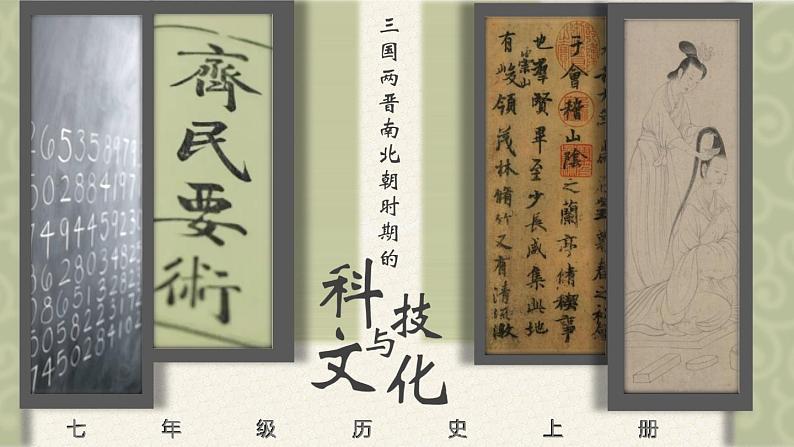 三国两晋南北朝时期的
科技
与
文化
齊民要術
26535897
502884197
于會稽山陰之蘭亭脩稧事
也羣賢畢至少長咸集此地
崇山
有峻領茂林脩竹又有清流激
七年级历史上册